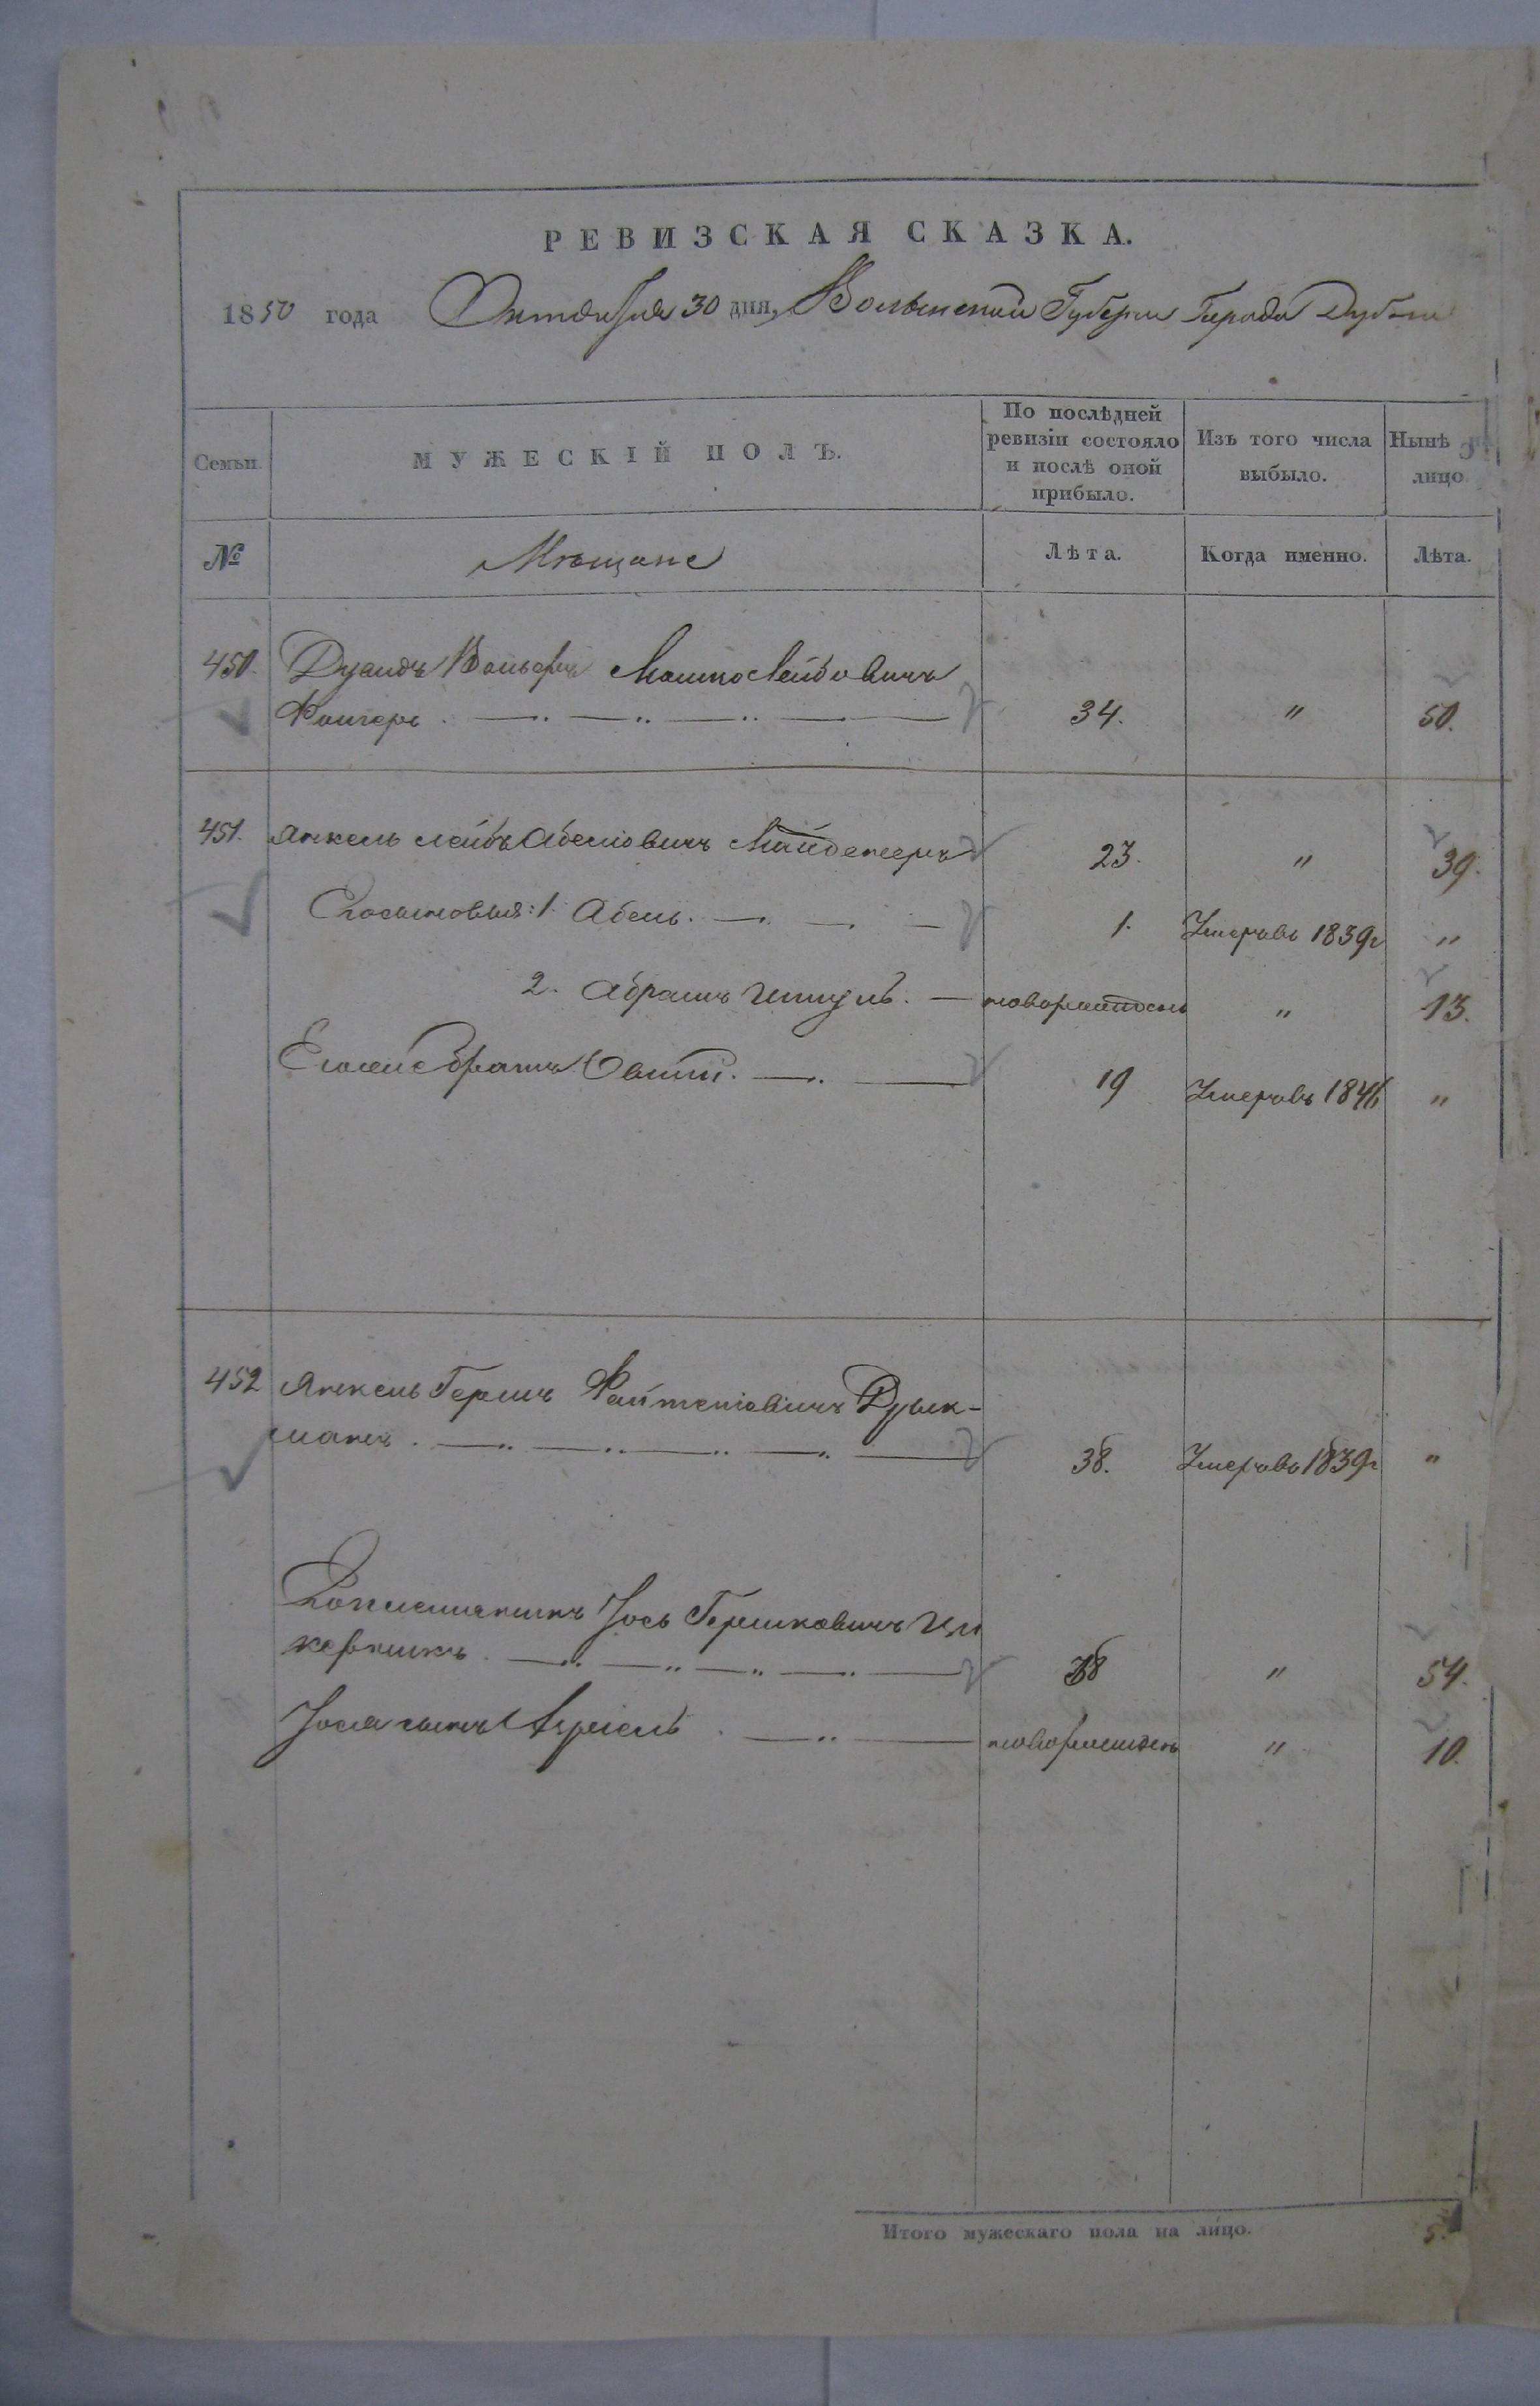 РЕВИЗСКАЯ СКАЗКА.
1850 года Октября 30 дня, Волынской Губерни Города Дубна
Семьи.
МУЖЕСКІЙ ПОЛЪ.
По послѣдней ревизіи состояло и послѣ оной прибыло.
Изъ того числа выбыло.
Нынѣ лицо
№ Мѣщане Лѣта. Когда именно. Лѣта.
450. Вольфъ Мошко Лейбовичъ
34. " 50.
451. Янкель Лейбъ Абеліовичъ 23. " 39.
Его сыновья: 1. Абель. 1. Умеръ въ 1839г "
2. Абрамъ новорожденъ " 13.
Его же братъ 19 Умеръ въ 1846 "
452 Янкель Гершъ Дрык-
манъ. 38. Умеръ въ 1839г "
Іось Гершковичъ Цу
керникъ. 38 " 54.
Іося сынъ Азріель новорожденъ " 10.
Итого мужескаго пола на лицо. 5.